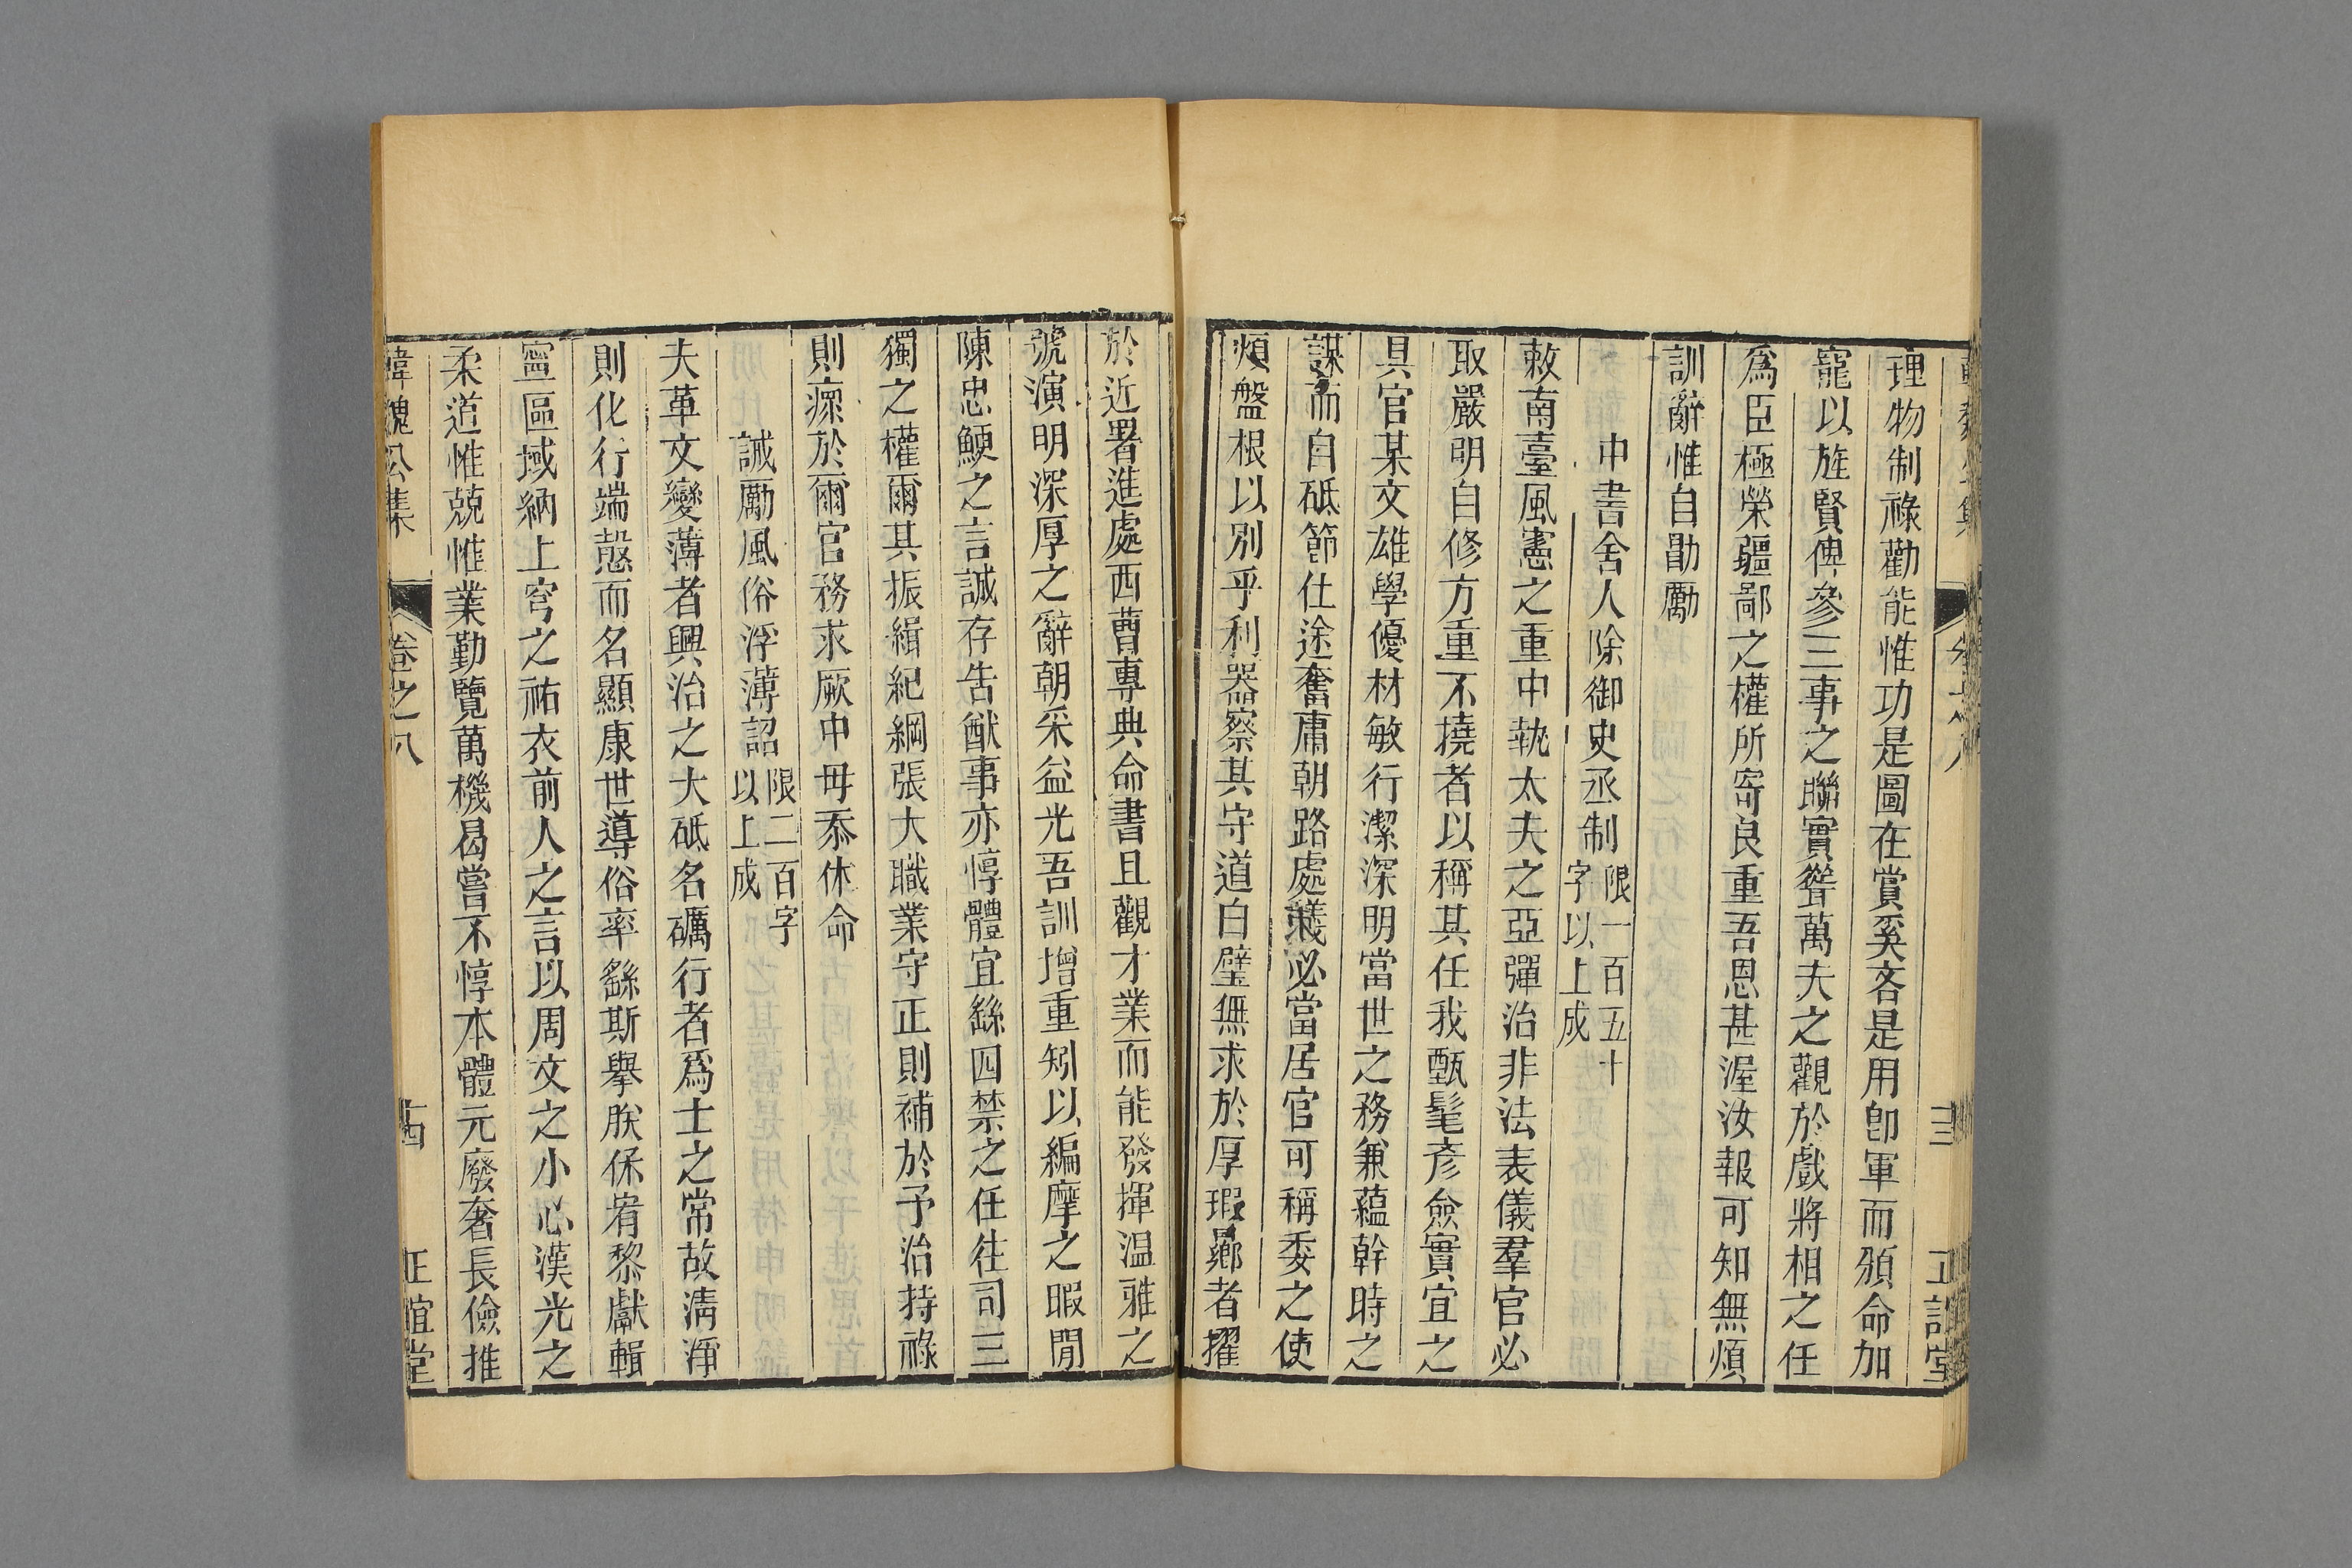 理物制祿勸能惟功是圖在賞奚吝是用卽軍而頒命加
寵以旌賢俾參三事之聯實聳萬夫之觀於戲將相之任
爲臣極榮疆鄙之權所寄良重吾恩甚渥汝報可知無煩
訓辭惟自勖勵
中書舍人除御史丞制限一百五十
字以上成
敕南臺風憲之重中執太夫之亞彈治非法表儀羣官必
取嚴明自修方重不撓者以稱其任我甄髦彥僉實宜之
具官某文雄學優材敏行潔深明當世之務兼蘊幹時之
謀而自砥節仕途奮庸朝路處議必當居官可稱委之使
煩盤根以別乎利器察其守道白璧無求於厚瑕曏者擢
於近署進處西曹專典命書且觀才業而能發揮温雅之
號演明深厚之辭朝采益光吾訓增重矧以編摩之暇閒
陳忠鯁之言誠存告猷事亦惇體宜繇四禁之任往司三
獨之權爾其振緝紀綱張大職業守正則補於予治持祿
則瘝於爾官務求厥中毋忝休命
誡勵風俗浮薄詔限二百字
以上成
夫革文變薄者興治之大砥名礪行者爲士之常故淸淨
則化行端慤而名顯康世導俗率繇斯舉朕保宥黎獻輯
寧區域納上穹之祐衣前人之言以周文之小心漢光之
柔道惟兢惟業勤覽萬機曷嘗不惇本體元廢奢長儉推
韓魏公集
卷之八
十四
正誼堂